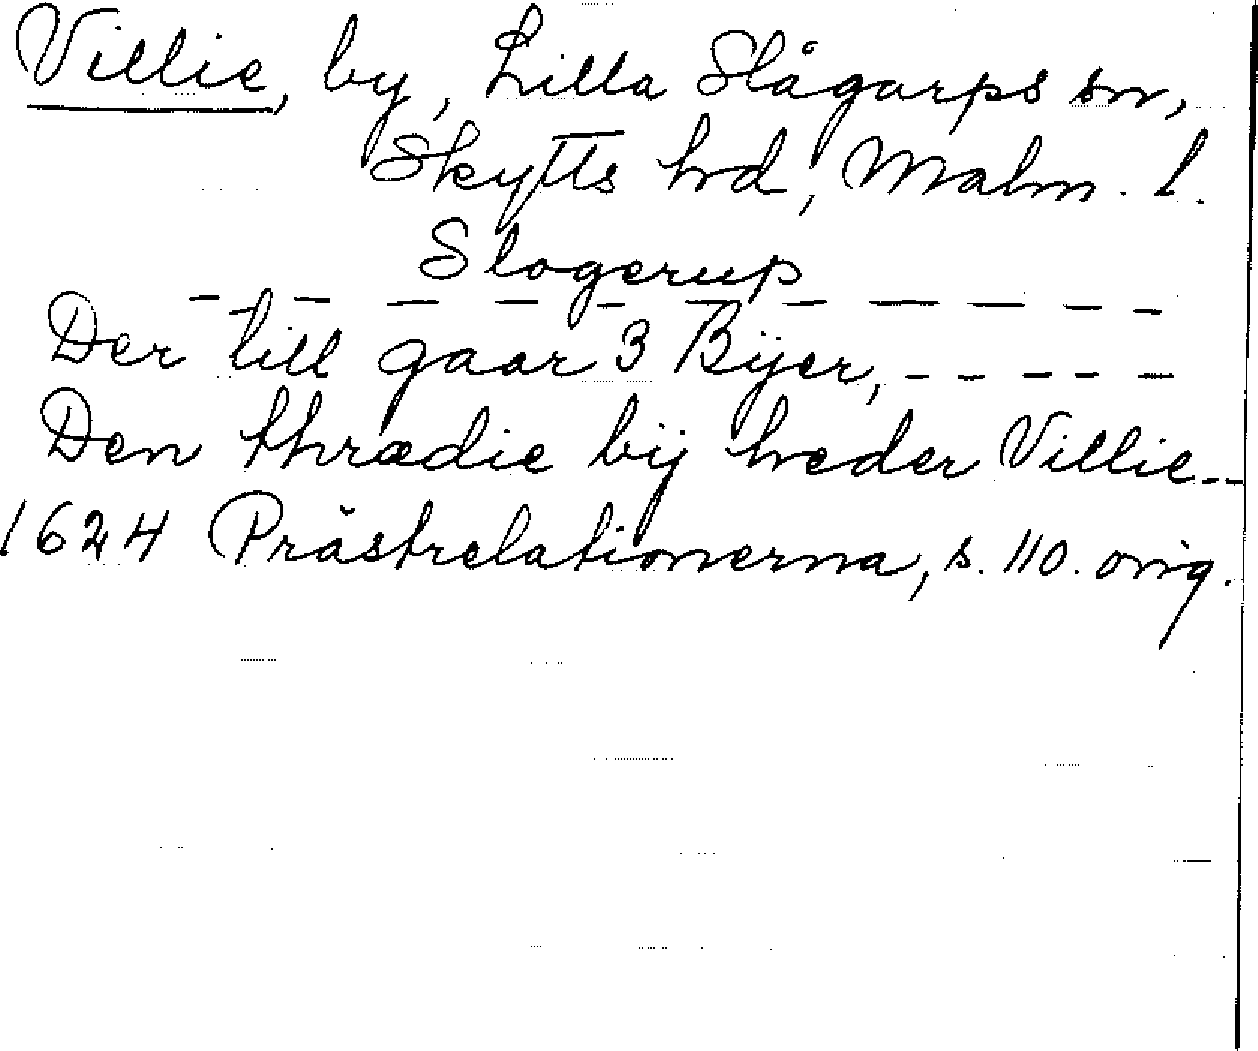 Villie, by, Lilla Slågarps sn,
Skytts hd, Malm. l.
Slogerup
– – – – – – – – – – –
Der till gaar 3 Bÿer, – – – – –
Den thrædie bÿ heder Villie --
1624 Prästrelationerna, s. 110. orig.